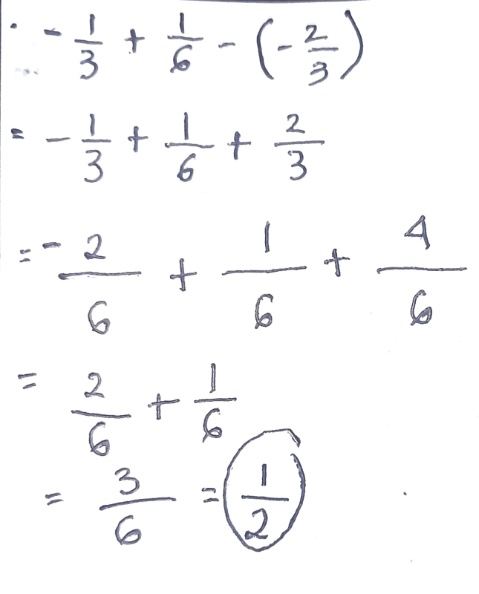 · - 1/3 + 1/6 - (- 2/3)
= - 1/3 + 1/6 + 2/3
= - 2/6 + 1/6 + 4/6
= 2/6 + 1/6
= 3/6 = 1/2